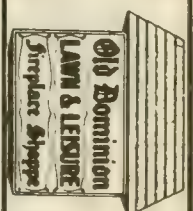 Old Dominion
LAWN & LEISURE
Fireplace Shoppe